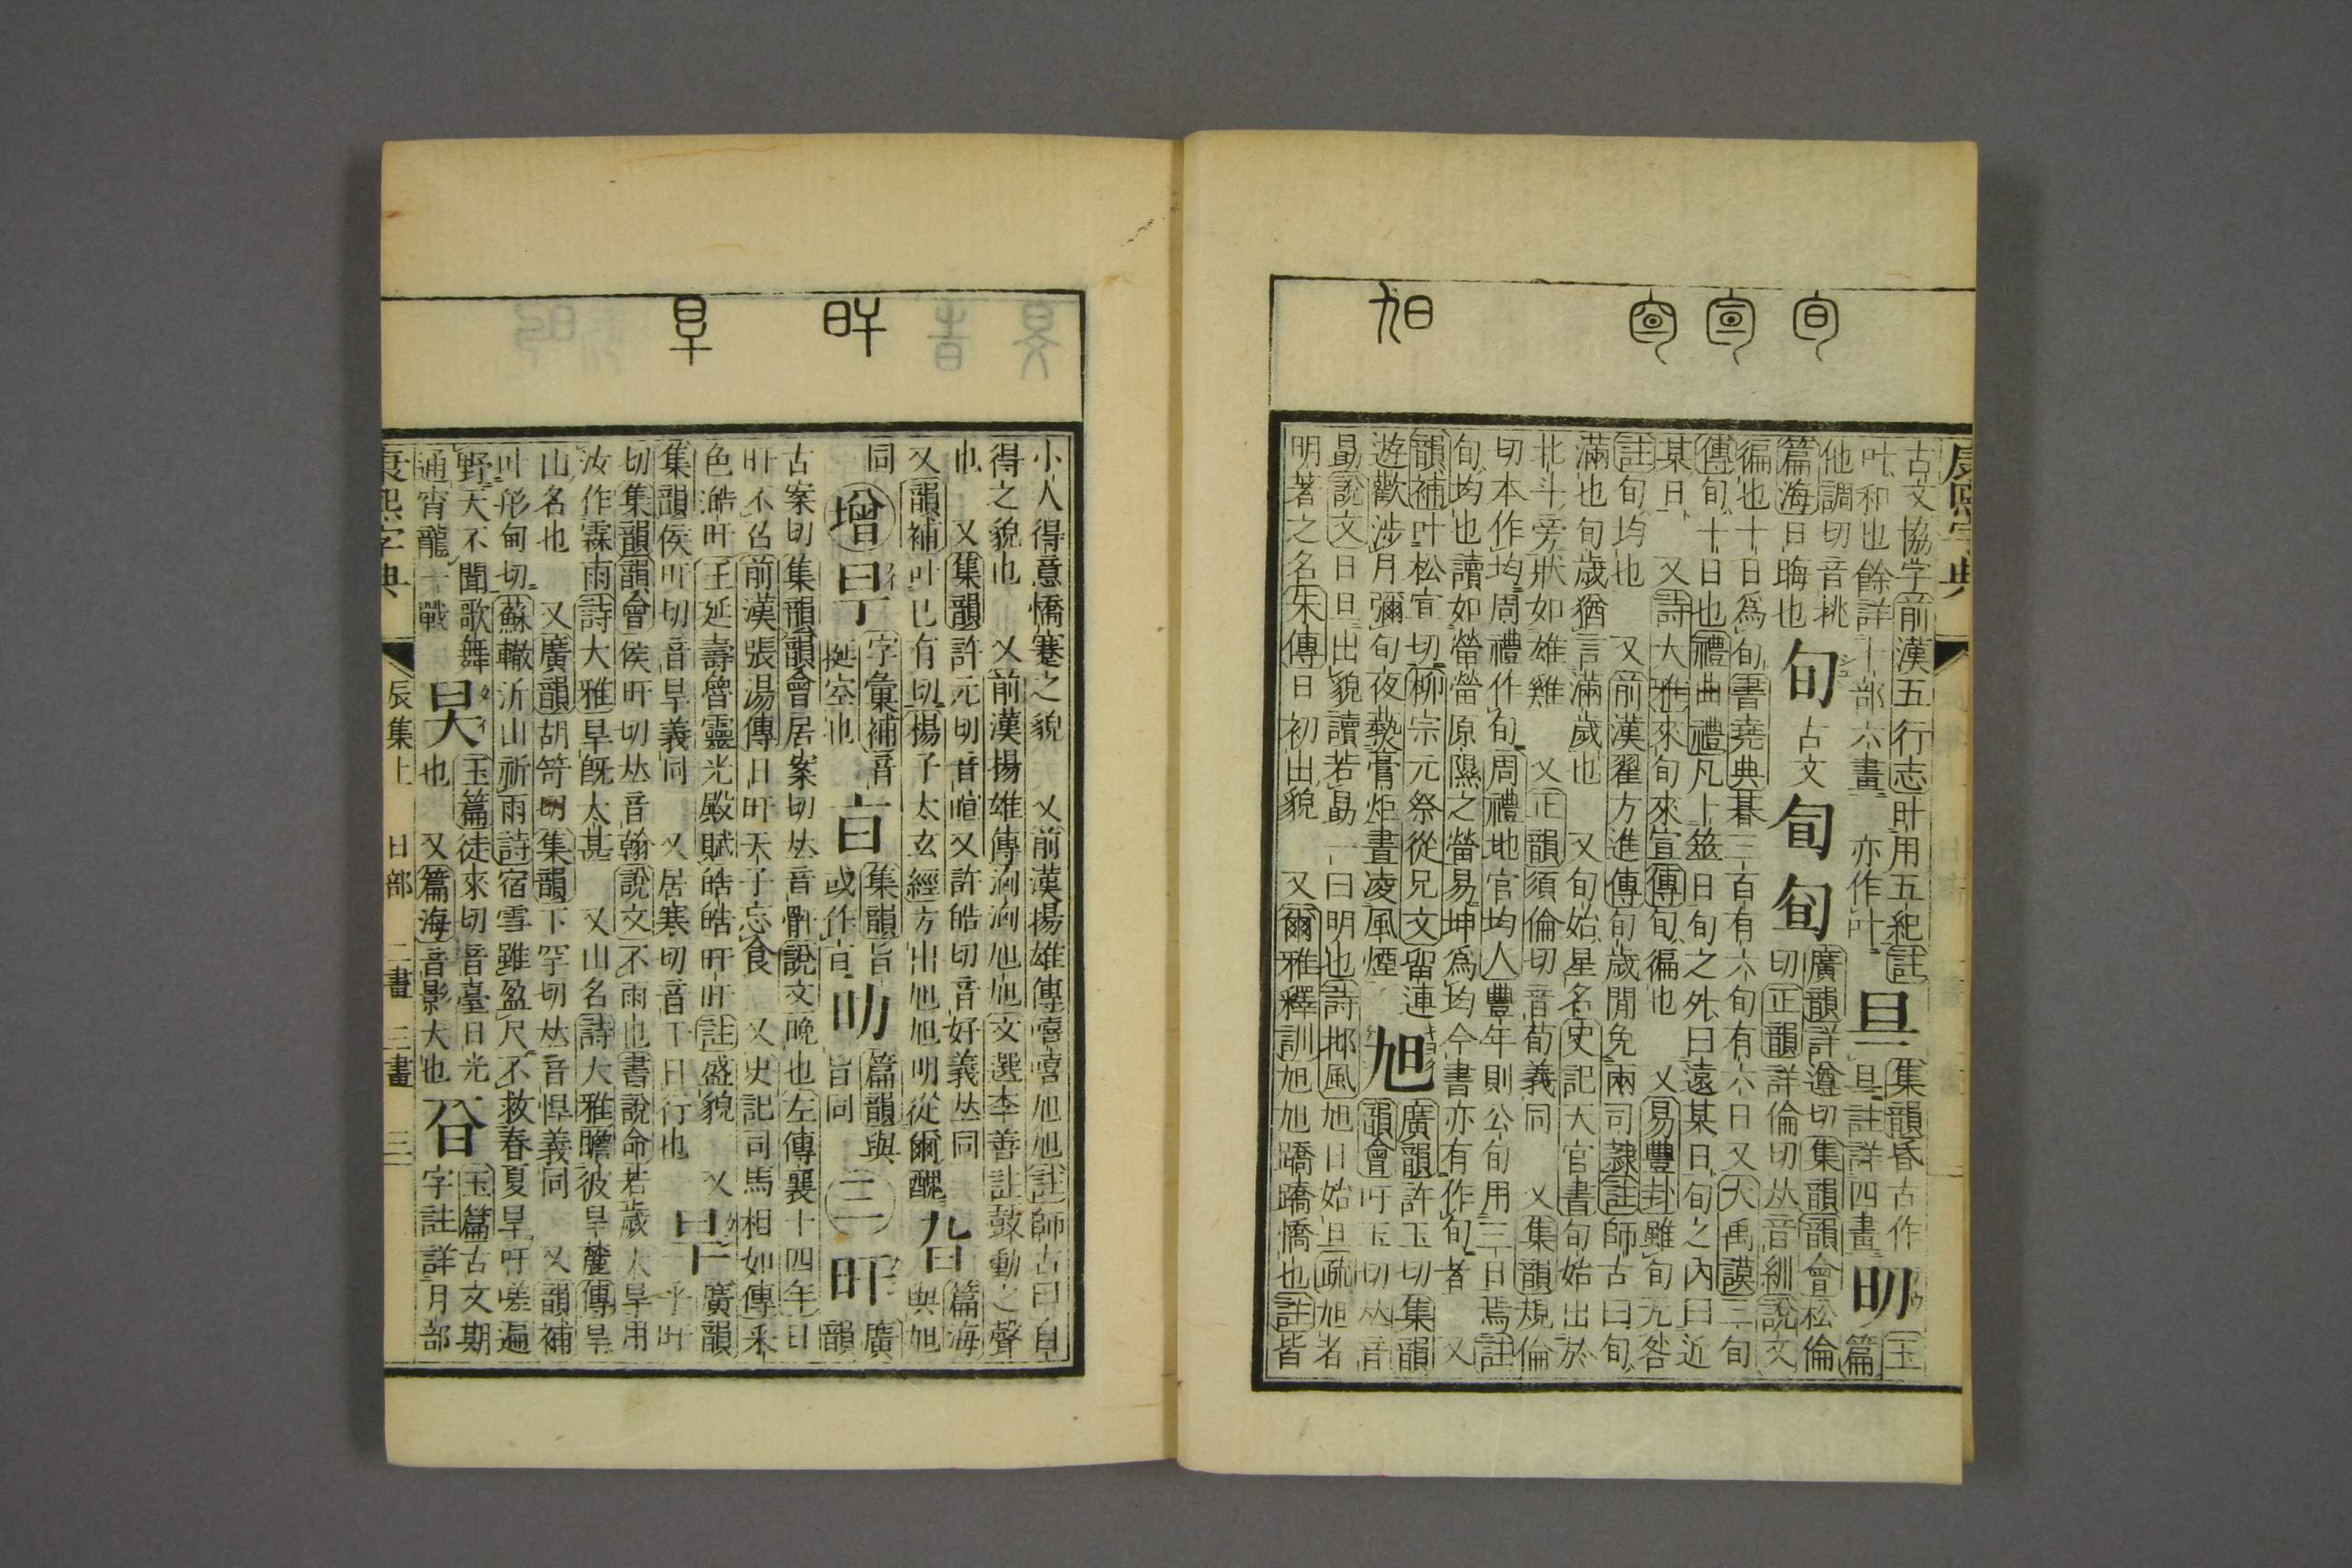 康熙字典
古文協字前漢五行志旪用五紀註
叶和也餘詳十部六畫 亦作叶 旦 集韻昏古作旦註詳四畫 明 玉篇
他調切音挑
篇海日晦也 旬 古文 旬 旬 廣韻詳遵切集韻韻會松倫切正韻詳倫切𠀤音紃說文
徧也十日爲旬書堯典朞三百有六旬有六日又大禹謨三旬
傳旬十日也禮曲禮凡卜筮日旬之外曰遠某日旬之內曰近
某日 又詩大雅來旬來宣傳旬徧也 又易豐卦雖旬无咎
註旬均也 又前漢翟方進傳旬歲閒免兩司隸註師古曰旬
滿也旬歲猶言滿歲也 又旬始星名史記天官書旬始出於
北斗旁狀如雄雞 又正韻須倫切音荀義同 又集韻規倫
切本作均周禮作旬周禮地官均人豐年則公旬用三日焉註
旬均也讀如螢螢原隰之螢易坤爲均今書亦有作旬者 又
韻補叶松宣切柳宗元祭從兄文留連
遊歡涉月彌旬夜爇膏炬晝凌風煙 旭 廣韻許玉切集韻韻會吁玉切𠀤音
勗說文日旦出貌讀若勗一曰明也詩邶風旭日始旦疏旭者
明著之名朱傳日初出貌 又爾雅釋訓旭旭蹻蹻憍也註皆
小人得意憍蹇之貌 又前漢揚雄傳嘻嘻旭旭註師古曰自
得之貌也 又前漢揚雄傳洶洶旭旭文選李善註鼓動之聲
也 又集韻許元切音暄又許皓切音好義𠀤同
又韻補叶已有切楊子太玄經方出旭旭明從爾醜 旮 篇海與旭
同 增 字彙補音挺空也 㫖 集韻旨或作㫖 叻 篇韻與旨同 三 旰 廣韻
古案切集韻韻會居案切𠀤音骭說文晚也左傳襄十四年日
旰不召前漢張湯傳日旰天子忘食 又史記司馬相如傳采
色澔旰王延壽魯靈光殿賦皓皓旰旰註盛貌 又
集韻侯旰切音旱義同 又居寒切音干日行也 旱 廣韻乎旰
切集韻韻會侯旰切𠀤音翰說文不雨也書說命若歲大旱用
汝作霖雨詩大雅旱旣太甚 又山名詩大雅瞻彼旱麓傳旱
山名也 又廣韻胡笴切集韻下罕切𠀤音悍義同 又韻補
叶形甸切蘇轍沂山祈雨詩宿雪雖盈尺不救春夏旱吁嗟遍
野天不聞歌舞通宵龍一戰 旲 玉篇徒來切音臺日光也 又篇海音影大也 㫑 玉篇古文期字註詳月部
康熙字典
辰集上 日部 二畫 三畫 三